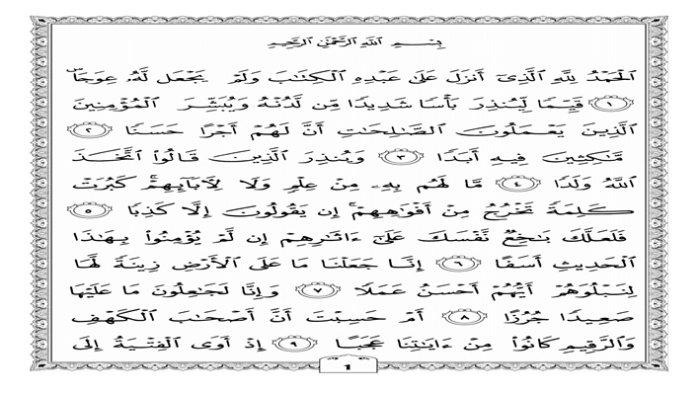 بِسْمِ ٱللَّهِ ٱلرَّحْمَٰنِ ٱلرَّحِيمِ
ٱلْحَمْدُ لِلَّهِ ٱلَّذِىٓ أَنزَلَ عَلَىٰ عَبْدِهِ ٱلْكِتَٰبَ وَلَمْ يَجْعَل لَّهُۥ عِوَجَاۜ
﴿١﴾ قَيِّمًا لِّيُنذِرَ بَأْسًا شَدِيدًا مِّن لَّدُنْهُ وَيُبَشِّرَ ٱلْمُؤْمِنِينَ
ٱلَّذِينَ يَعْمَلُونَ ٱلصَّٰلِحَٰتِ أَنَّ لَهُمْ أَجْرًا حَسَنًا ﴿٢﴾
مَّٰكِثِينَ فِيهِ أَبَدًا ﴿٣﴾ وَيُنذِرَ ٱلَّذِينَ قَالُوا۟ ٱتَّخَذَ
ٱللَّهُ وَلَدًا ﴿٤﴾ مَّا لَهُم بِهِۦ مِنْ عِلْمٍ وَلَا لِءَابَآئِهِمْ ۚ كَبُرَتْ
كَلِمَةً تَخْرُجُ مِنْ أَفْوَٰهِهِمْ ۚ إِن يَقُولُونَ إِلَّا كَذِبًا ﴿٥﴾
فَلَعَلَّكَ بَٰخِعٌ نَّفْسَكَ عَلَىٰٓ ءَاثَٰرِهِمْ إِن لَّمْ يُؤْمِنُوا۟ بِهَٰذَا
ٱلْحَدِيثِ أَسَفًا ﴿٦﴾ إِنَّا جَعَلْنَا مَا عَلَى ٱلْأَرْضِ زِينَةً لَّهَا
لِنَبْلُوَهُمْ أَيُّهُمْ أَحْسَنُ عَمَلًا ﴿٧﴾ وَإِنَّا لَجَٰعِلُونَ مَا عَلَيْهَا
صَعِيدًا جُرُزًا ﴿٨﴾ أَمْ حَسِبْتَ أَنَّ أَصْحَٰبَ ٱلْكَهْفِ
وَٱلرَّقِيمِ كَانُوا۟ مِنْ ءَايَٰتِنَا عَجَبًا ﴿٩﴾ إِذْ أَوَى ٱلْفِتْيَةُ إِلَى
1